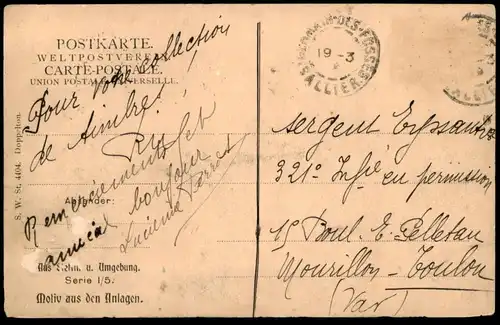 POSTKARTE.
WELTPOSTVEREIN
CARTE-POSTALE.
UNION POSTALE UNIVERSELLE.
Pour votre collection
de timbres!
Remerciements et
amical bonjour
Lucienne
Absender:
Aus Köln. u. Umgebung.
Serie I/5.
Motiv aus den Anlagen.
S. W. St. 4404. Doppelton.
GERMAIN-DES-FOSSÉS
19-3
ALLIER
ALLIER
Sergent
321e Infie en permission
15 Boul. E. Pelletan
Mourillon-Toulon
(Var)